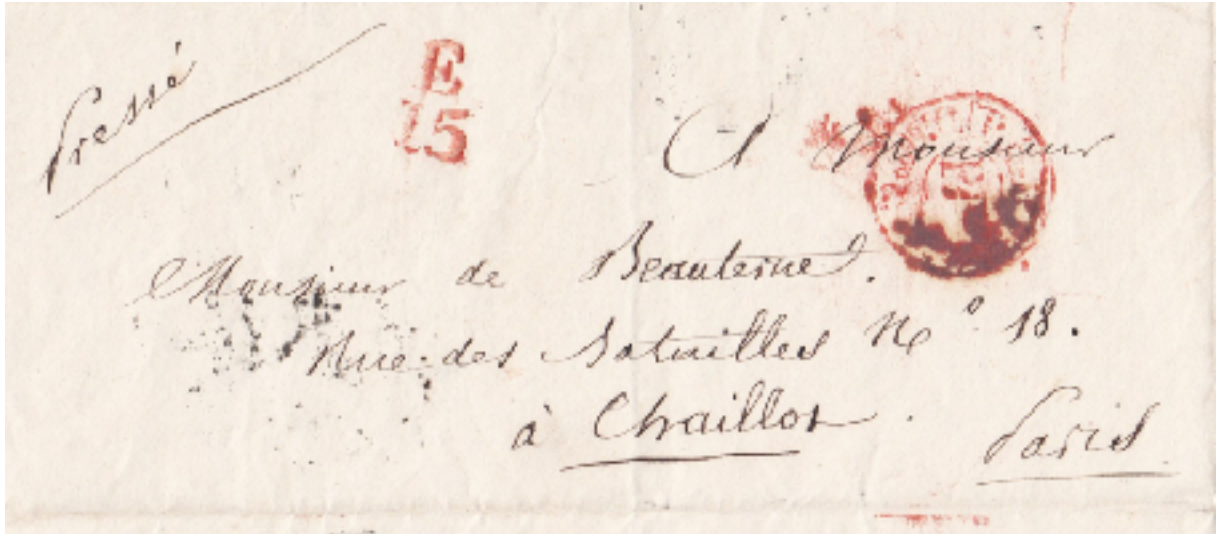 Pressé
E
15
A Monsieur
Monsieur de Beauterne.
Rue des Batailles N° 18.
à Chaillot.
Paris